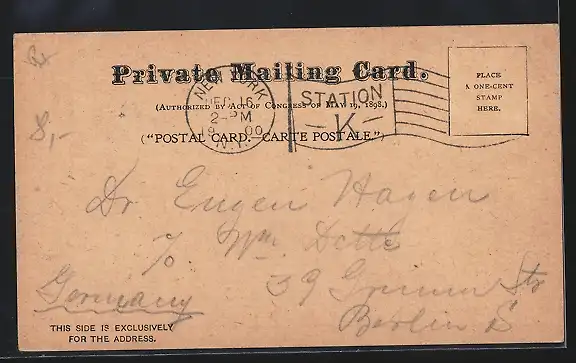 Private Mailing Card.
(AUTHORIZED BY ACT OF CONGRESS OF MAY 19, 1898.)
("POSTAL CARD.—CARTE POSTALE.")
PLACE
A ONE-CENT
STAMP
HERE.
NEW YORK
SEP 16
2-PM
1900
N.Y.
STATION
-K-
8,-
Dr Eugen Hagen
% Wm. Dette
39 Grimm Str
Berlin S
Germany
THIS SIDE IS EXCLUSIVELY
FOR THE ADDRESS.